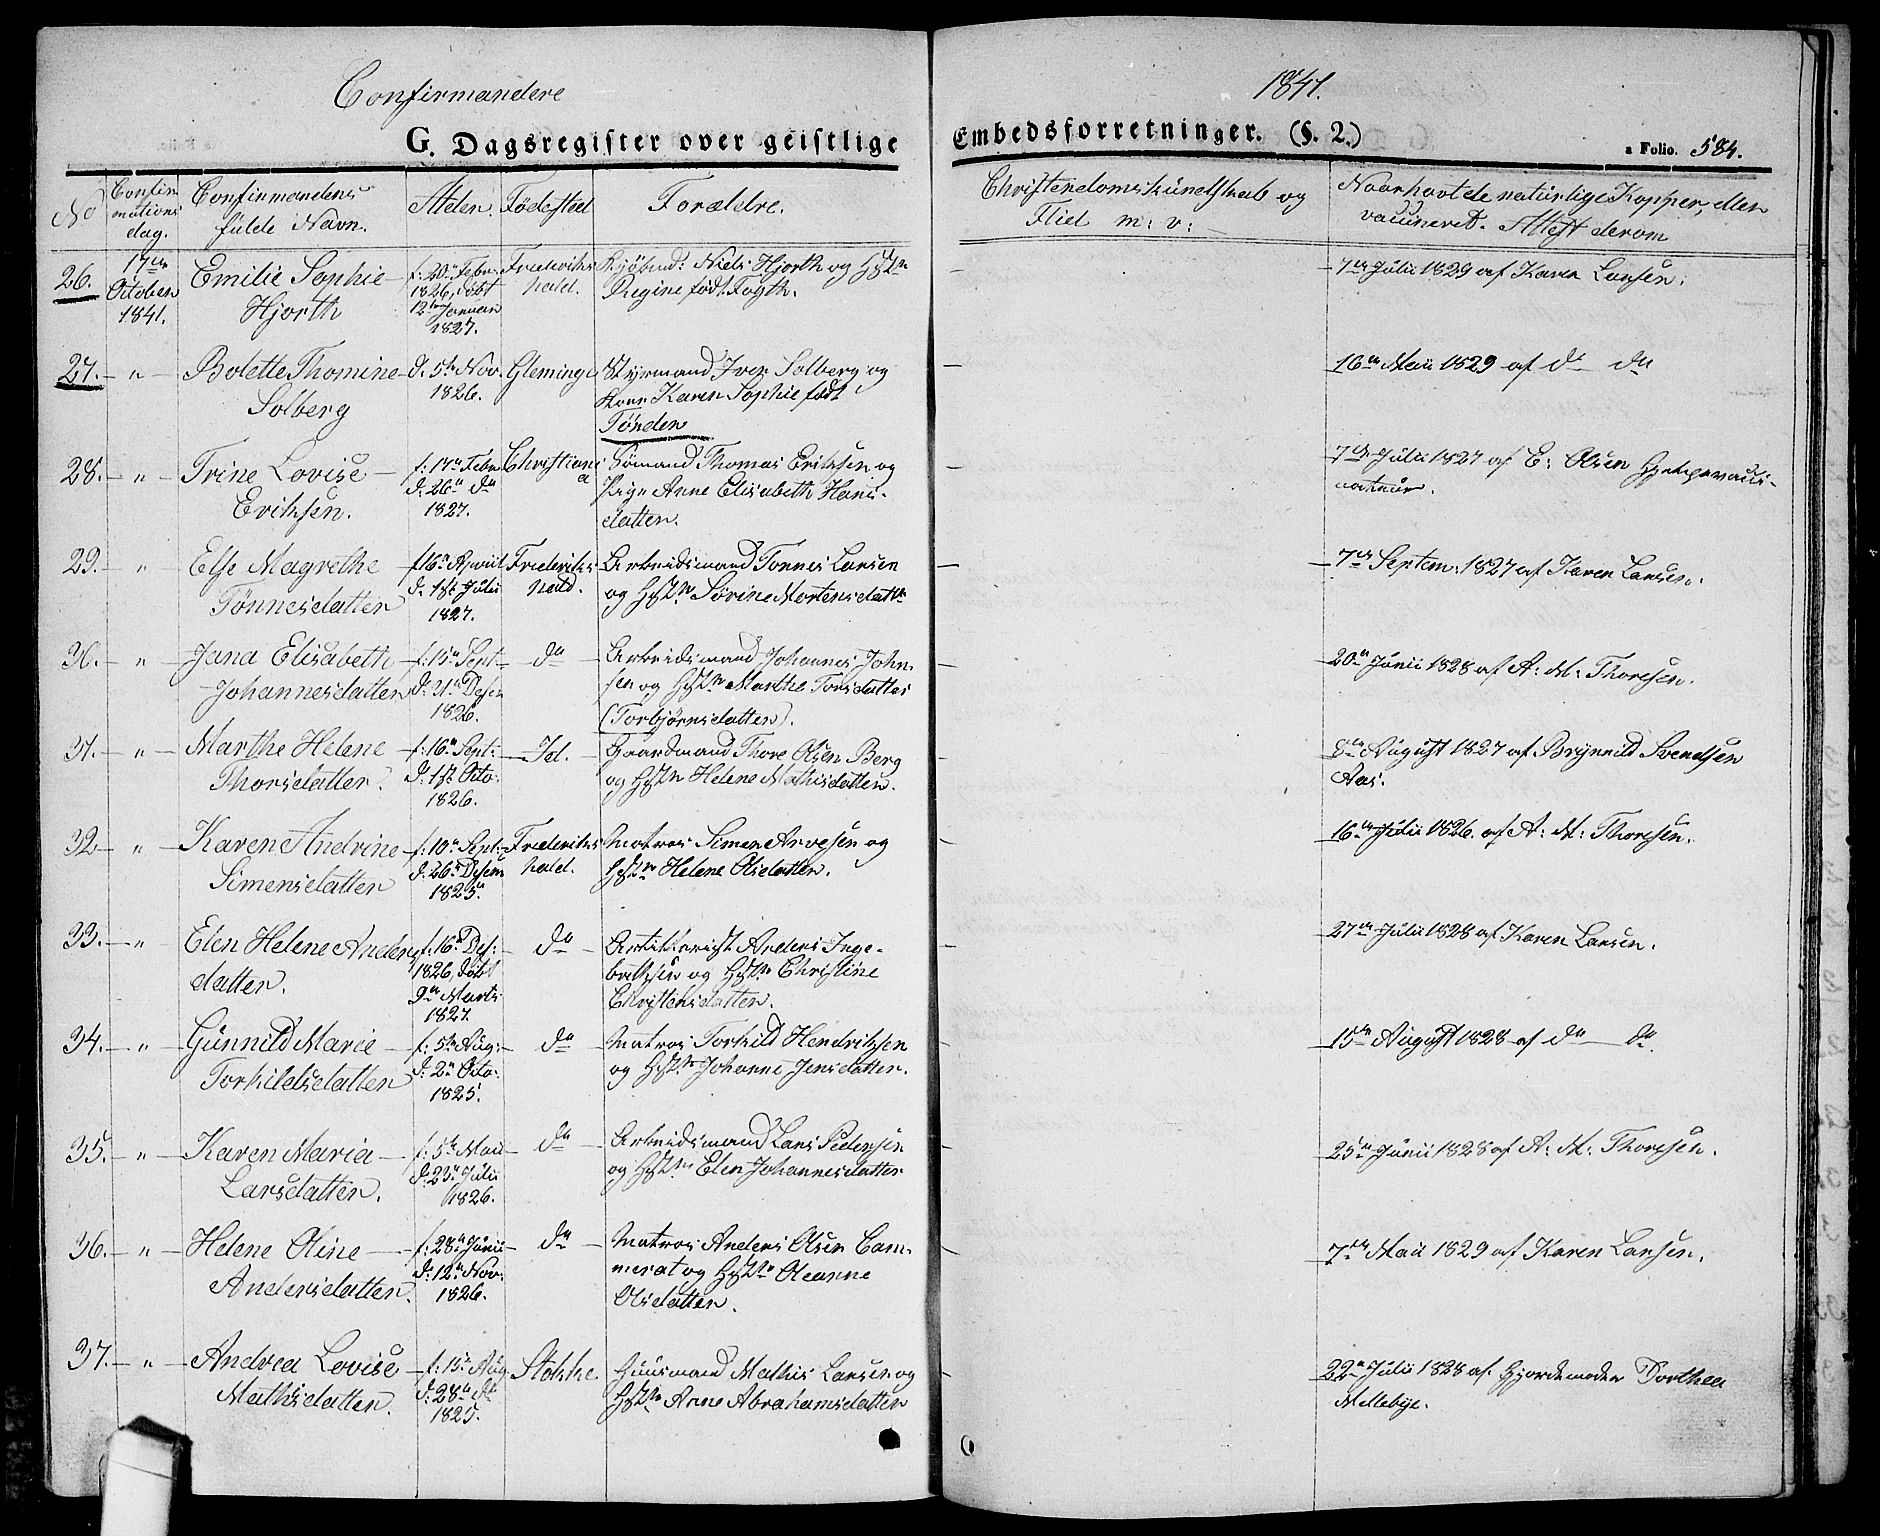 Confirmandere
1841.
G. Dagsregister over geistlige
Embedsforretninger. (§. 2.)
a Folio. 584.
No
Confir
mations
dag.
Confirmandens
fulde Navn.
Alder
Fødested
Forældre.
Christendomskundskab og
Flid m: v:
Naar havt de natürlige Kopper, eller
vaccineret. Attest derom
26.
17de
October
1841.
Emilie Sophie
Hjorth
f: 20de Febr
1826, døbt
12te Januar
1827.
Frederiks
hald.
Niels Hjorth og
Regine født Fogth.
7de Julii 1829 af Karen Larsen.
27. — " —
Bolette Thomine
Solberg
d. 5te Nov.
1826.
Gleminge
Styrmand Iver Solberg og
Karen Sophie født
Tønder
16de Maii 1829 af do do
28. — " —
Trine Lovise
Eriksen.
f: 17de Febr
d: 26de do
1827.
Christiani
a
Sømand Thomas Eriksen og
Pige Anne Elisabeth Hans-
datter.
7de Julii 1827 af E: Olsen
29. "
Else Magrethe
Tønnesdatter
f 16de April
d: 1ste Julii
1827.
Frederiks
hald.
Arbeidsmand Tønnes Larsen
og Sørine Mortensdatter
7de Septem: 1827 af Karen Larsen.
30. — "
Jana Elisabeth
Johannesdatter
f: 15de Sept
d: 21de Desem
1826.
do
Arbeidsmand Johannes John-
sen og Marthe Torsdatter
(Torbjørnsdatter).
20de Junii 1828 af A: M: Thoresen.
31. — " —
Marthe Helene
Thorsdatter.
f: 16de Sept:
d: 1ste Octo:
1826.
Id.
Gaardmand Thore Olsen Berg
og Helene Mathisdatter.
8de August 1827 af Brynnild Svendsen
Aas.
32 — " —
Karen Andrine
Simensdatter
f: 10de Sept:
d: 26de Desem
1825.
Frederiks
hald.
Matros Simen Arvesen og
Helene Olsdatter.
16de Julii 1826. af A: M: Thoresen.
33. — " —
Elen Helene Anders
datter.
f: 16de Des:
1826, døbt
9de Marts
1827.
do
Anders Inge-
bretsen og Christine
Christensdatter.
27de Julii 1828 af Karen Larsen.
34. — " —
Günnild Marie
Torkildsdatter
f: 5te Aug:
d: 2de Octo:
1825.
do
Matros Torkild Hendriksen
og Johanne Jensdatter.
15de August 1828 af do — do.
35. — " —
Karen Maria
Larsdatter.
f: 5te Maii
d: 23de Julii
1826.
do
Arbeidsmand Lars Pedersen
og Elen Johannesdatter
25de Junii 1828 af A: M: Thoresen.
36. — " —
Helene Oline
Andersdatter.
f: 28de Junii
d: 12te Nov:
1826.
do
Matros Anders Olsen Cam-
merat og Oleanne
Olsdatter.
7de Maii 1829 af Karen Larsen.
37. — " —
Andrea Lovise
Mathisdatter.
f: 15de Aug
d: 28de
1825.
Stokke.
Huusmand Mathis Larsen og
Anne Abrahamsdatter
22de Julii 1828 af. Gjordemoder Dorthea
Mellebye.